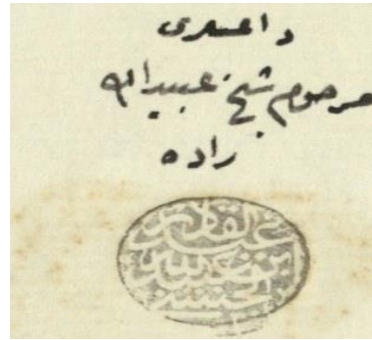 داعیلری
مرحوم شیخ عبیدالله
زاده
عبدالقادر